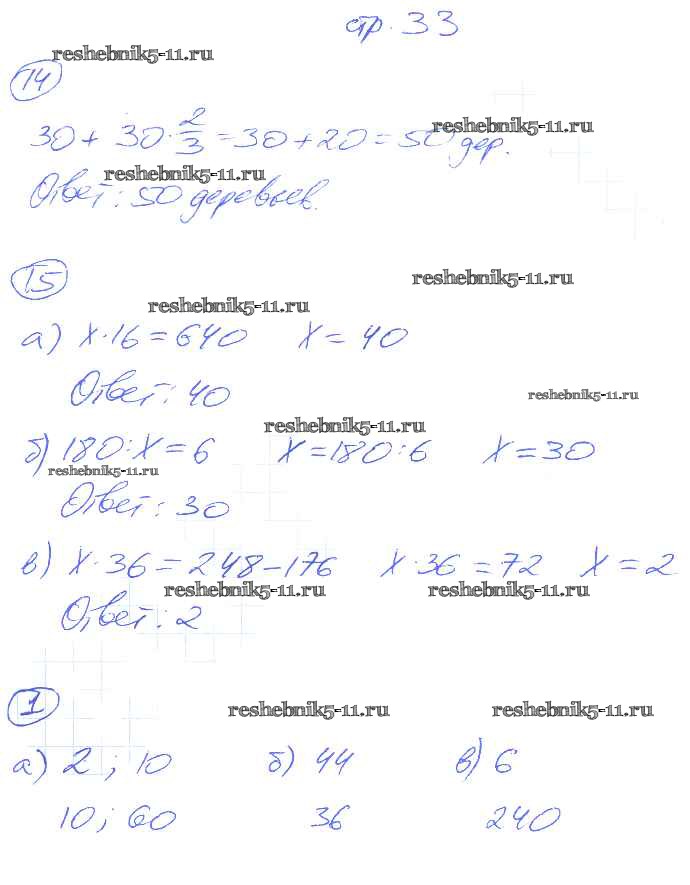 стр. 33
reshebnik5-11.ru
14
30 + 30 · 2/3 = 30 + 20 = 50 дер.
reshebnik5-11.ru
reshebnik5-11.ru
Ответ: 50 деревьев.
15
reshebnik5-11.ru
reshebnik5-11.ru
а) x · 16 = 640 x = 40
Ответ: 40
reshebnik5-11.ru
reshebnik5-11.ru
б) 180 : x = 6 x = 180 : 6 x = 30
reshebnik5-11.ru
Ответ: 30
в) x · 36 = 248 - 176 x · 36 = 72 x = 2
reshebnik5-11.ru reshebnik5-11.ru
Ответ: 2
1
reshebnik5-11.ru reshebnik5-11.ru
а) 2 ; 10 б) 44 в) 6
10 ; 60 36 240